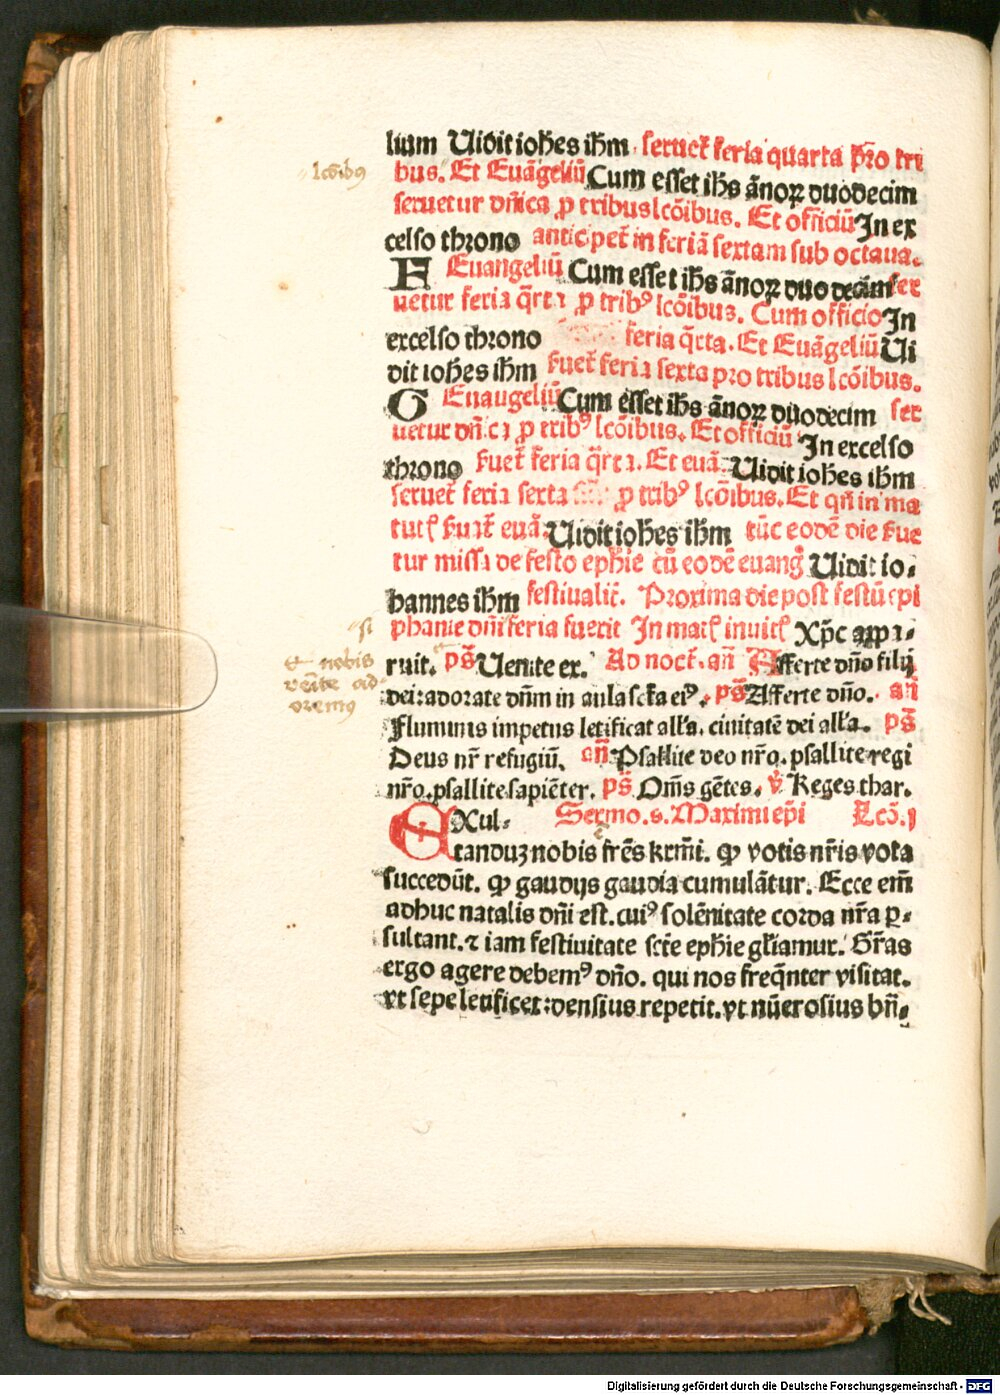 lium Uidit ioh̄es ih̄m seruet᷑ feria quarta p̄ro tri
lcōibꝰ
bus. Et Euāgeliū Cum esset ih̄s ānoꝝ duodecim
seruetur dn̄ica ꝑ tribus lcōibus. Et officiū In ex
celso throno anticipet᷑ in feriā sextam sub octaua.
F Euangeliū Cum esset ih̄s ānoꝝ duo decim ser
uetur feria q̄rta ꝑ tribꝰ lcōibus. Cum officio In
excelso throno feria q̄rta. Et Euāgeliū Ui
dit ioh̄es ih̄m fuet᷑ feria sexta pro tribus lcōibus.
G Euangeliū Cum esset ih̄s ānoꝝ duodecim ser
uetur dn̄ica ꝑ tribꝰ lcōibus. Et officiū In excelso
throno fuet᷑ feria q̄rta. Et euā. Uidit ioh̄es ih̄m
seruet᷑ feria sexta ꝑ tribꝰ lcōibus. Et qn̄ in ma
tut᷑ fuat᷑ euā. Uidit ioh̄es ih̄m tūc eodē die fue
tur missa de festo eph̄ie cū eodē euang᷑ Uidit io⸗
hannes ih̄m festiualit᷑. Proxima die post festū epi
phanie dn̄i feria fuerit In mat᷑ inuit᷑ Xp̄c appa⸗
ruit. ps̄ Uenite ex. Ad noct᷑. an̄ Afferte dn̄o filij
et nobis
venite ad⸗
oremꝰ
dei: adorate dn̄m in aula sc̄ta eiꝰ. ps̄ Afferte dn̄o. an̄
Fluminis impetus letificat all'a. ciuitatē dei all'a. ps̄
Deus nr̄ refugiū. an̄ Psallite deo nr̄o. psallite regi
nr̄o. psallite sapiēter. ps̄ Om̄s gētes. v᷑ Reges thar.
EXul⸗ Sermo. s. Maximi ep̄i Lcō. j
tanduꝫ nobis fr̄es kr̄mi. ꝙ votis nr̄is vota
succedūt. ꝙ gaudijs gaudia cumulātur. Ecce em̄
adhuc natalis dn̄i est. cuiꝰ solēnitate corda nr̄a ꝑ⸗
sultant. ⁊ iam festiuitate sc̄te eph̄ie gl̄iamur. Gr̄as
ergo agere debemꝰ dn̄o. qui nos freq̄nter visitat.
vt sepe letificet: densius repetit. vt nūerosius bn̄⸗
Digitalisierung gefördert durch die Deutsche Forschungsgemeinschaft - DFG